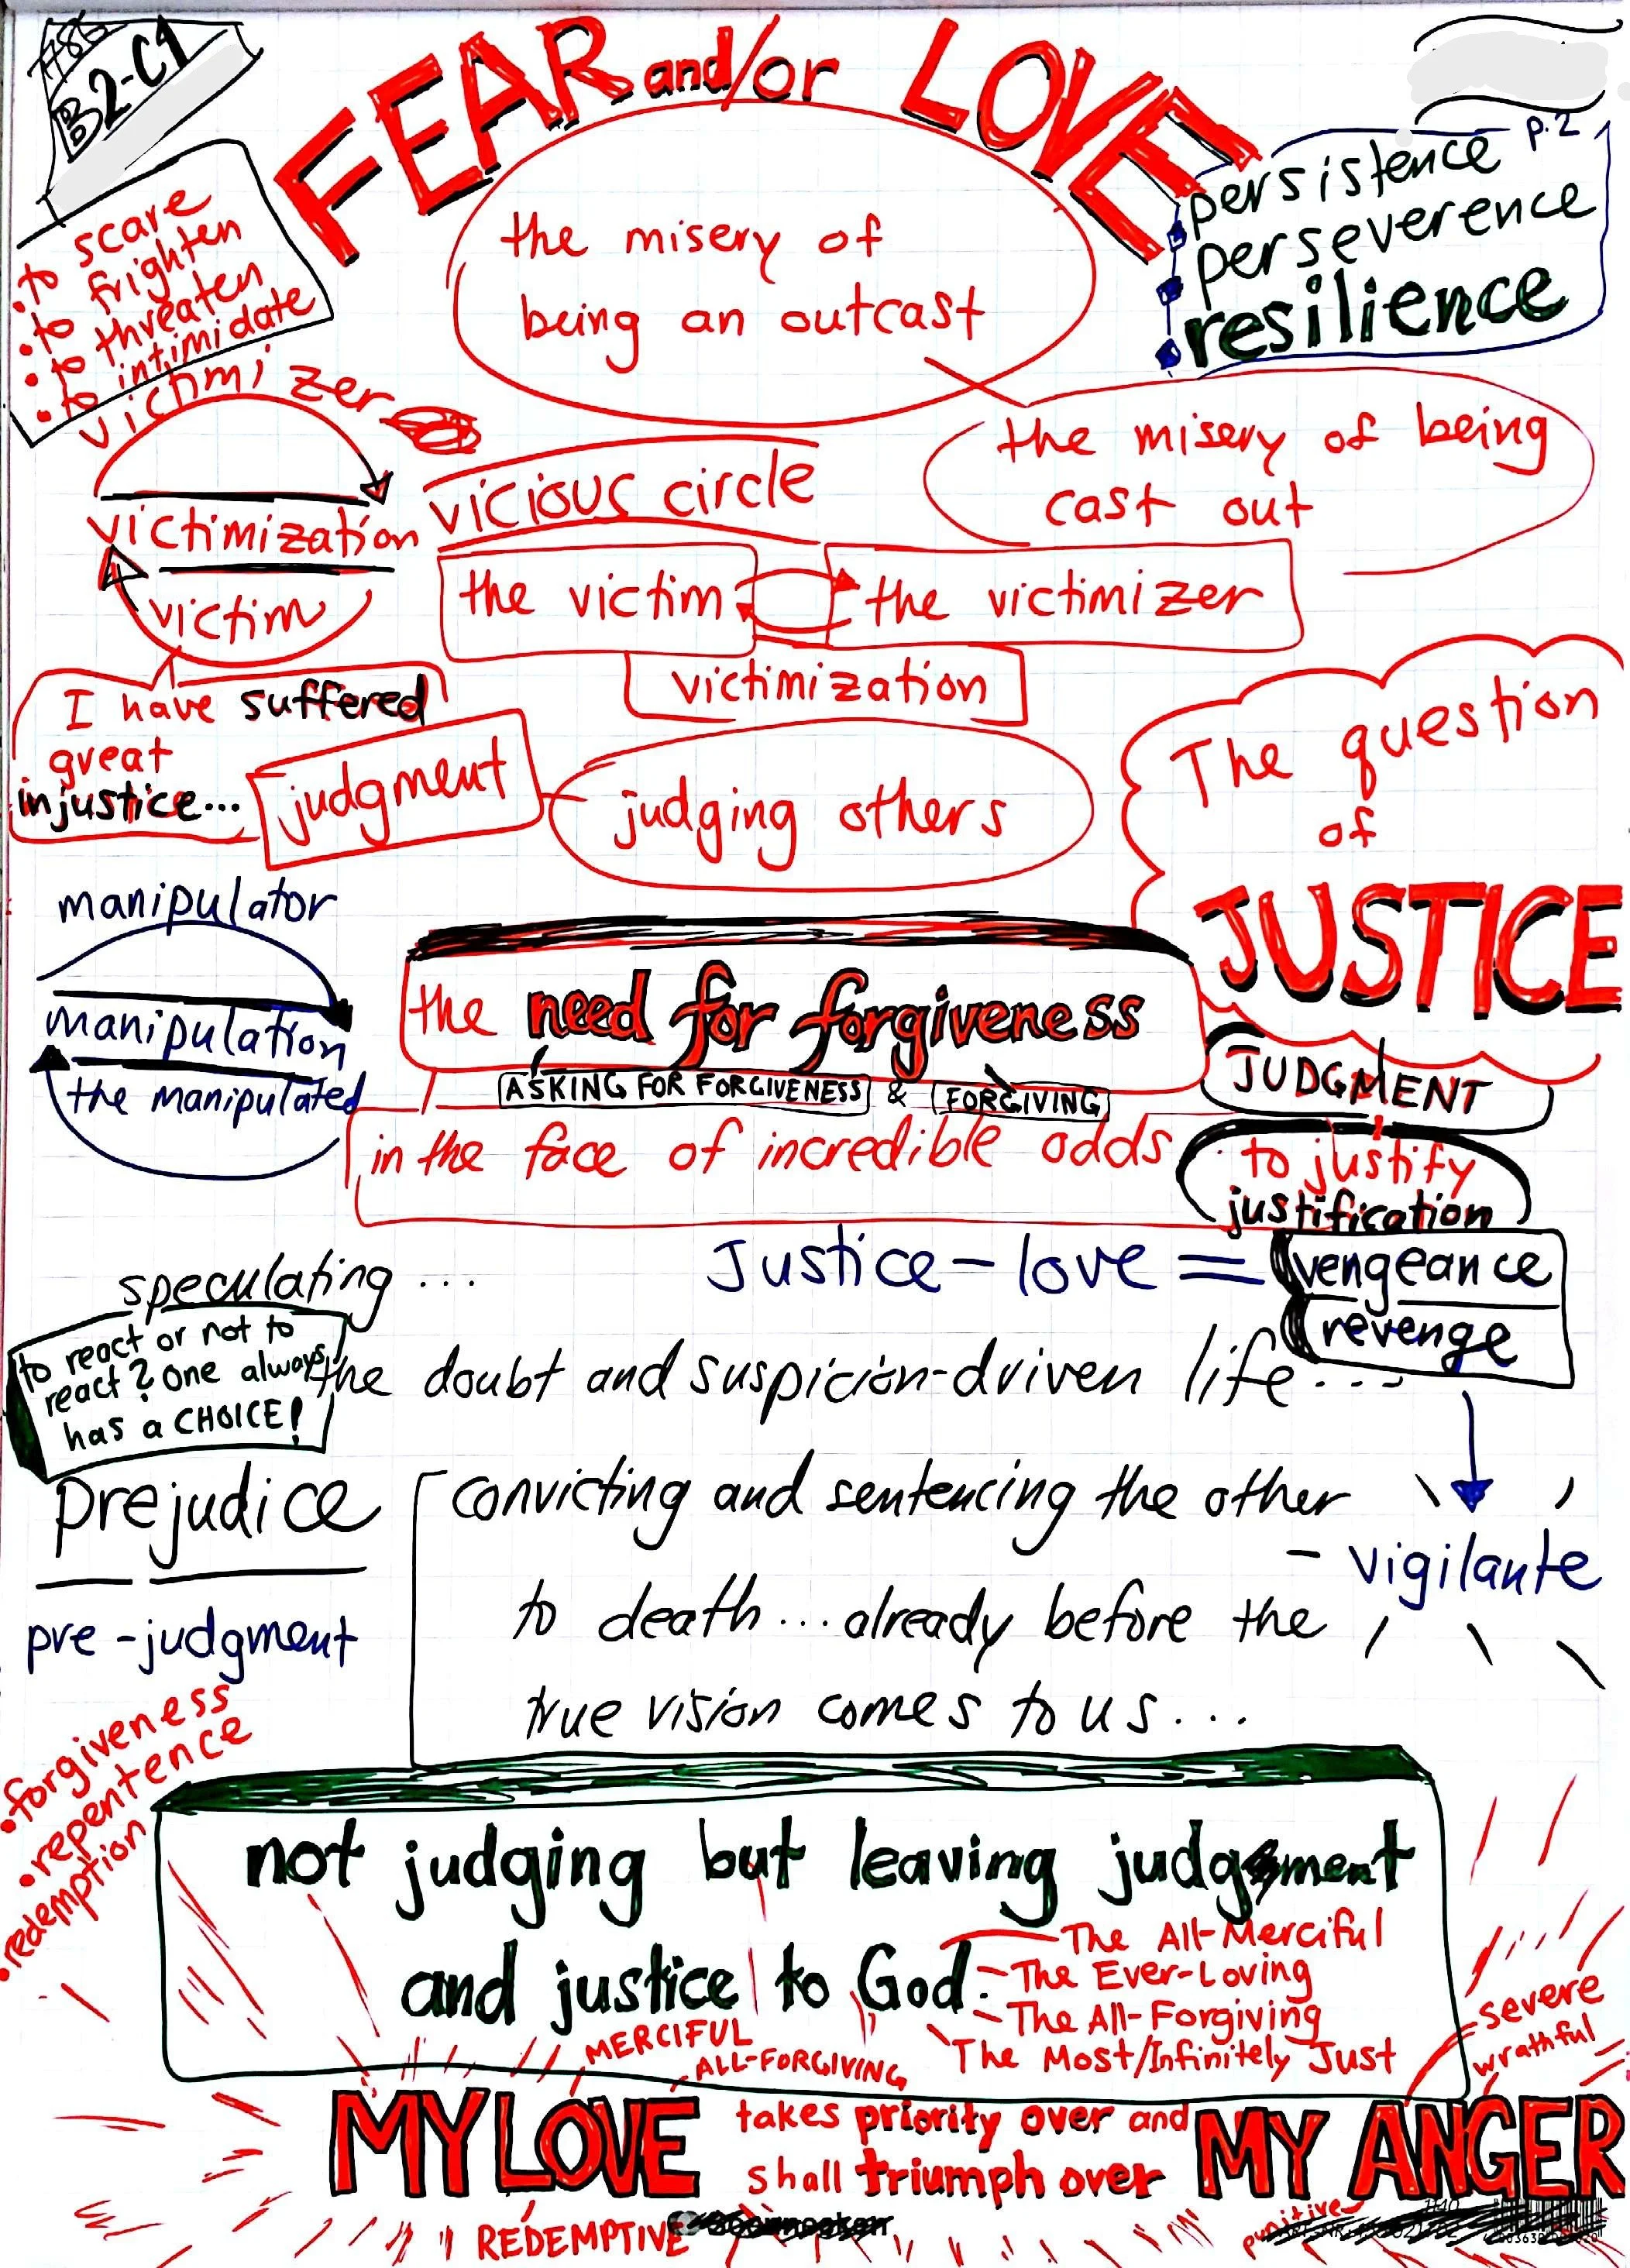 #86
B2-C1
FEAR and/or LOVE
p.2
persistence
perseverence
resilience
• to scare
• to frighten
• to threaten
• to intimidate
the misery of
being an outcast
the misery of being
cast out
victimizer
victimization
victim
vicious circle
the victim
the victimizer
victimization
I have suffered
great
injustice...
judgment
judging others
The question
of
JUSTICE
JUDGMENT
to justify
justification
manipulator
manipulation
the manipulated
the need for forgiveness
ASKING FOR FORGIVENESS & FORGIVING
in the face of incredible odds
Justice - love =
vengeance
revenge
- vigilante
speculating ...
to react or not to
react? One always
has a CHOICE!
the doubt and suspicion-driven life...
prejudice
pre-judgment
convicting and sentencing the other
to death... already before the
true vision comes to us...
• forgiveness
• repentence
• redemption
not judging but leaving judgment
and justice to God.
- The All-Merciful
- The Ever-Loving
- The All-Forgiving
The Most/Infinitely Just
MERCIFUL
ALL-FORGIVING
severe
wrathful
MY LOVE takes priority over and
shall triumph over MY ANGER
REDEMPTIVE
punitive